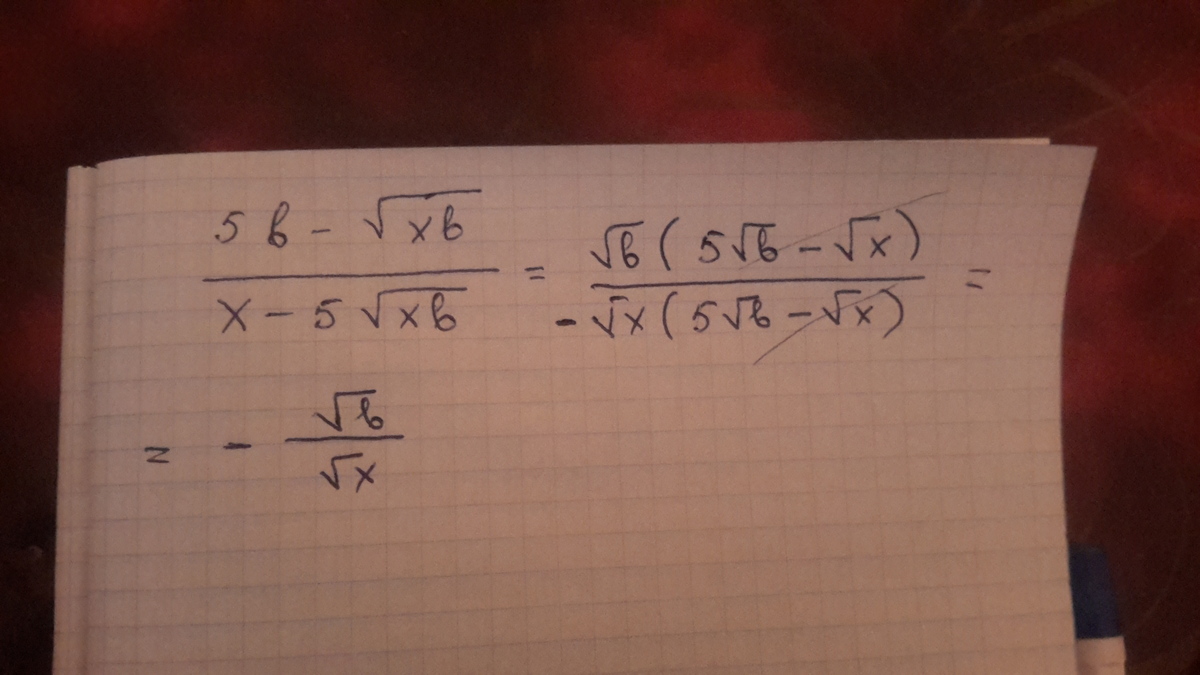 (5b - √(xb)) / (x - 5√(xb)) = (√b(5√b - √x)) / (-√x(5√b - √x)) =
= - √b / √x